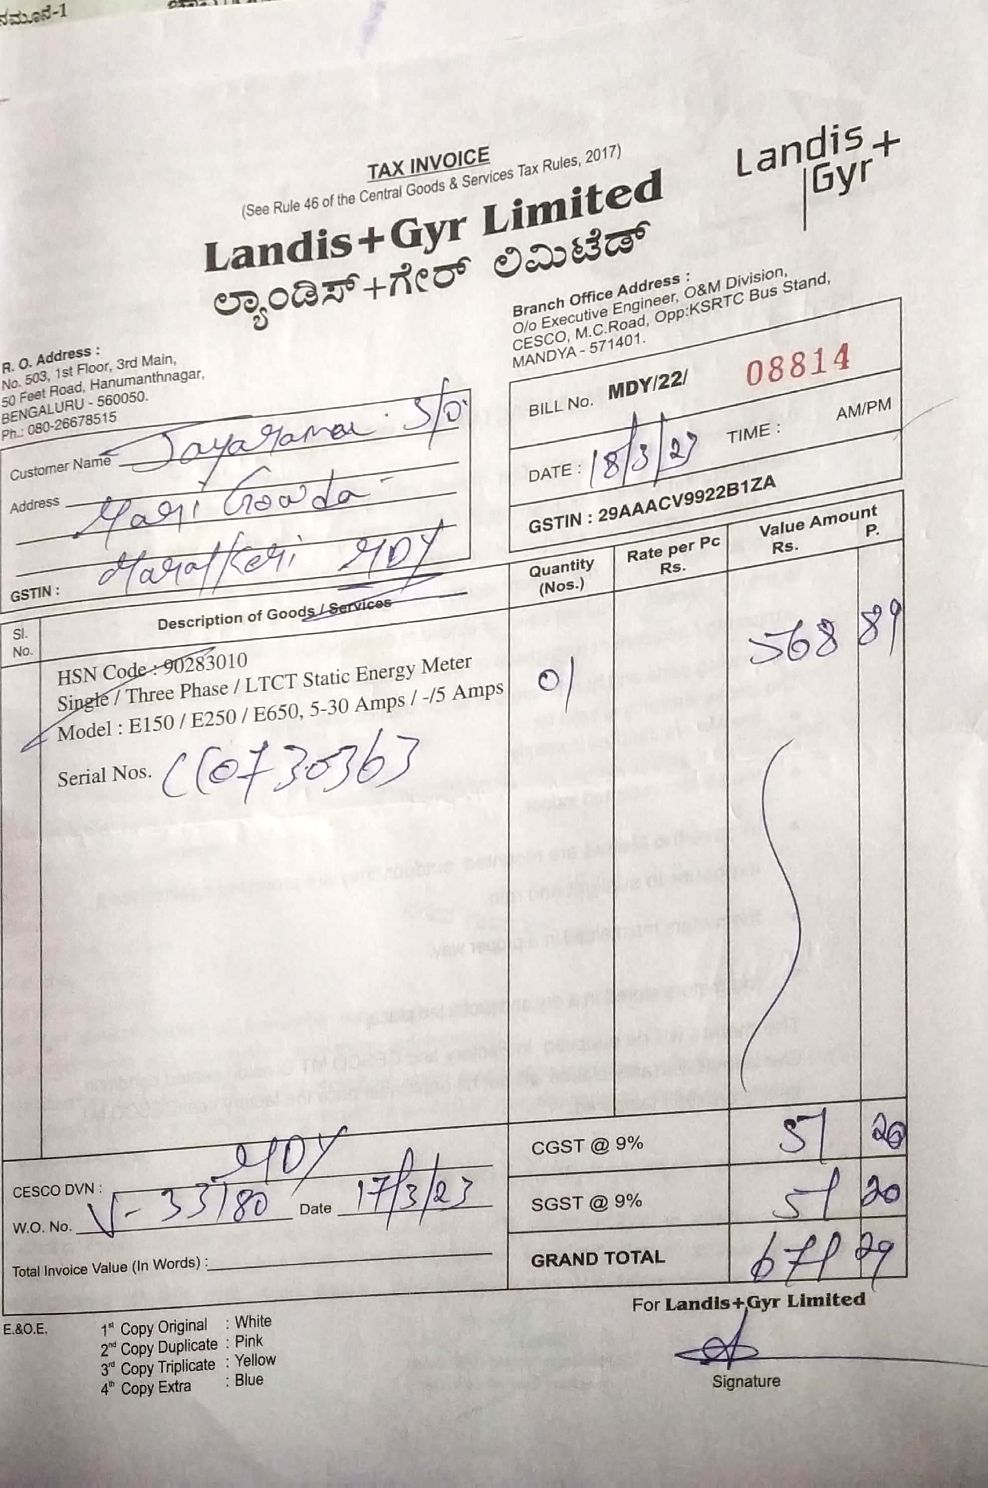 ನಮೂನೆ-1
TAX INVOICE
(See Rule 46 of the Central Goods & Services Tax Rules, 2017)
Landis+Gyr Limited
ಲ್ಯಾಂಡಿಸ್+ಗೇರ್ ಲಿಮಿಟೆಡ್
Landis+
Gyr
R. O. Address :
No. 503, 1st Floor, 3rd Main,
50 Feet Road, Hanumanthnagar,
BENGALURU - 560050.
Ph.: 080-26678515
Branch Office Address :
O/o Executive Engineer, O&M Division,
CESCO, M.C.Road, Opp:KSRTC Bus Stand,
MANDYA - 571401.
Customer Name Jayarama S/o.
Address Mari Gowda
MDY
GSTIN :
BILL No. MDY/22/ 08814
DATE : 18/3/23 TIME : AM/PM
GSTIN : 29AAACV9922B1ZA
Sl. No. Description of Goods / Services Quantity (Nos.) Rate per Pc Rs. Value Amount Rs. P.
HSN Code : 90283010
Single / Three Phase / LTCT Static Energy Meter 01 568 89
Model : E150 / E250 / E650, 5-30 Amps / -/5 Amps
Serial Nos. CC0730363
CGST @ 9% 51 20
SGST @ 9% 51 20
GRAND TOTAL 671 29
CESCO DVN : MDY
W.O. No. V-33180 Date 17/3/23
Total Invoice Value (In Words) :
E.&O.E.
1st Copy Original : White
2nd Copy Duplicate : Pink
3rd Copy Triplicate : Yellow
4th Copy Extra : Blue
For Landis+Gyr Limited
Signature